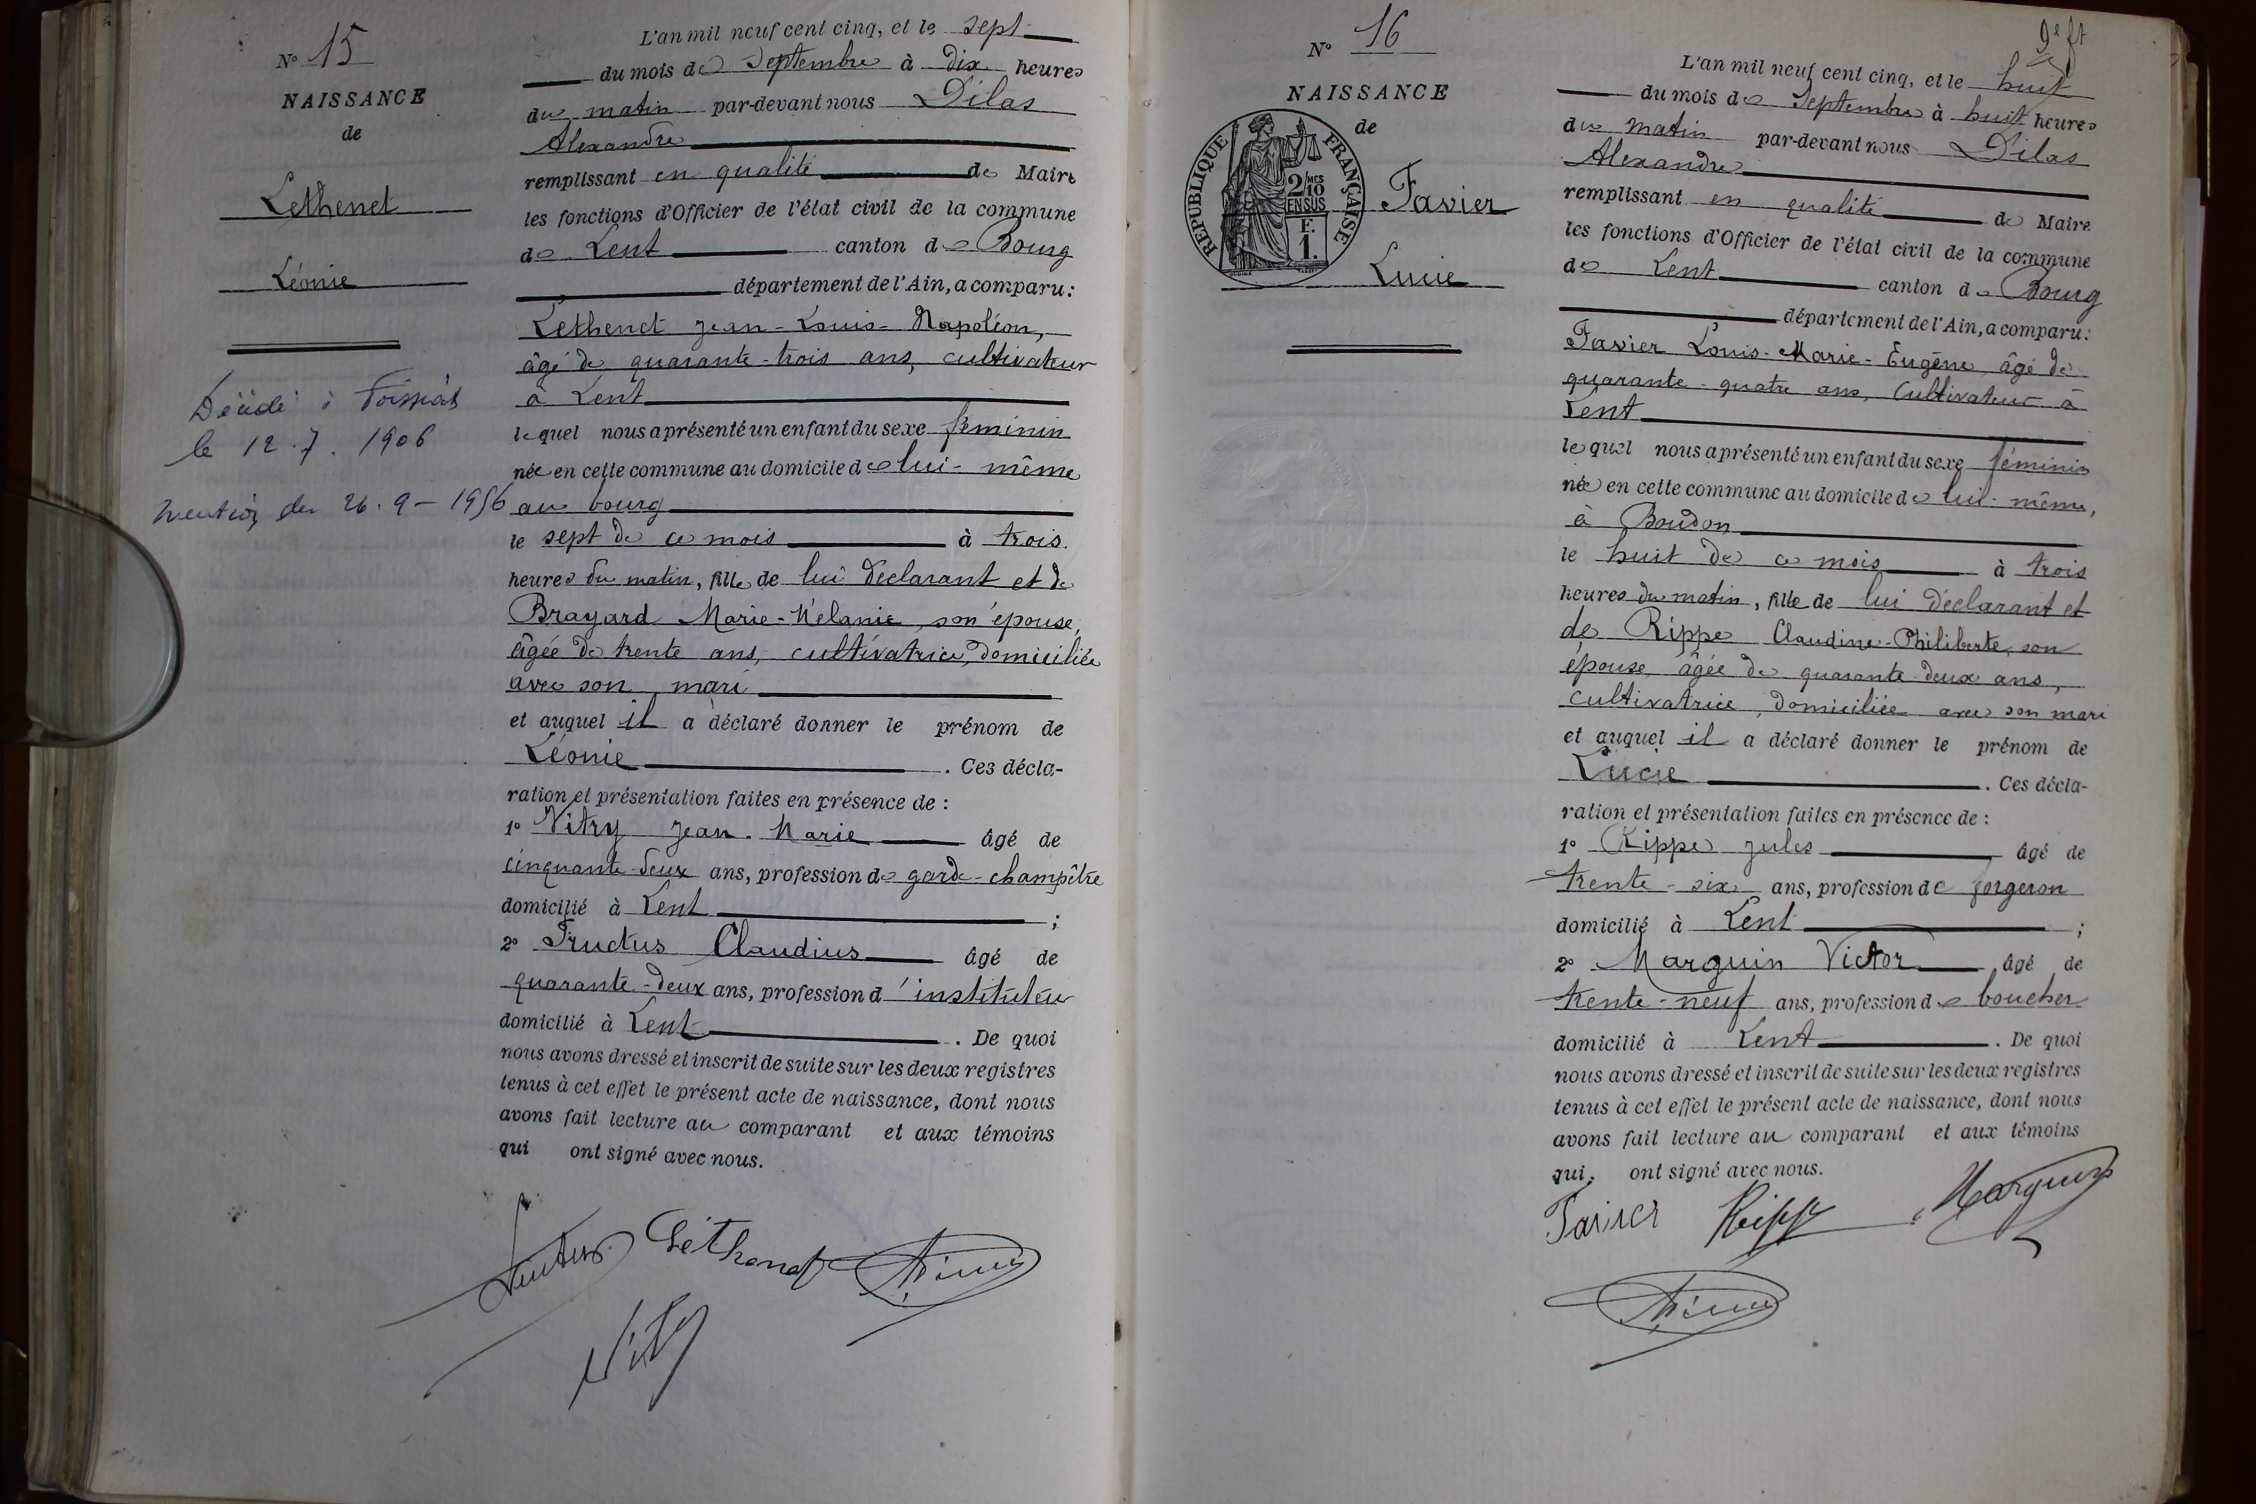 N° 15
NAISSANCE
de
Lethenet
Léonie
Décédé à Foissiat
le 12.7.1906
mention du 26.9-1956
L'an mil neuf cent cinq, et le sept
du mois de Septembre à dix heures
du matin par-devant nous Dilas
Alexandre
remplissant en qualité de Maire
les fonctions d'Officier de l'état civil de la commune
de Lent canton de Bourg
département de l'Ain, a comparu:
Lethenet Jean-Louis-Napoléon,
âgé de quarante-trois ans, cultivateur
à Lent
lequel nous a présenté un enfant du sexe féminin
née en cette commune au domicile de lui-même
au bourg
le sept de ce mois à trois
heures du matin, fille de lui déclarant et de
Brayard Marie-Mélanie, son épouse,
âgée de trente ans, cultivatrice, domiciliée
avec son mari
et auquel il a déclaré donner le prénom de
Léonie. Ces décla-
ration et présentation faites en présence de :
1° Vitry Jean-Marie âgé de
cinquante-deux ans, profession de garde-champêtre
domicilié à Lent ;
2° Fructus Claudius âgé de
quarante-deux ans, profession d'instituteur
domicilié à Lent. De quoi
nous avons dressé et inscrit de suite sur les deux registres
tenus à cet effet le présent acte de naissance, dont nous
avons fait lecture au comparant et aux témoins
qui ont signé avec nous.
Fructus Léthenet
Vitry
N° 16
NAISSANCE
de
REPUBLIQUE FRANÇAISE
2/10 MES
EN SUS
F.
1.
Favier
Lucie
L'an mil neuf cent cinq, et le huit
du mois de Septembre à huit heures
du matin par-devant nous Dilas
Alexandre
remplissant en qualité de Maire
les fonctions d'Officier de l'état civil de la commune
de Lent canton de Bourg
département de l'Ain, a comparu:
Favier Louis-Marie-Eugène âgé de
quarante-quatre ans, Cultivateur à
Lent
lequel nous a présenté un enfant du sexe féminin
née en cette commune au domicile de lui-même,
à Boudon
le huit de ce mois à trois
heures du matin, fille de lui déclarant et
de Rippe Claudine-Philiberte, son
épouse, âgée de quarante-deux ans,
cultivatrice, domiciliée avec son mari
et auquel il a déclaré donner le prénom de
Lucie. Ces décla-
ration et présentation faites en présence de :
1° Rippe Jules âgé de
trente-six ans, profession de forgeron
domicilié à Lent ;
2° Marguin Victor âgé de
trente-neuf ans, profession de boucher
domicilié à Lent. De quoi
nous avons dressé et inscrit de suite sur les deux registres
tenus à cet effet le présent acte de naissance, dont nous
avons fait lecture au comparant et aux témoins
qui ont signé avec nous.
Favier Rippe Marguin